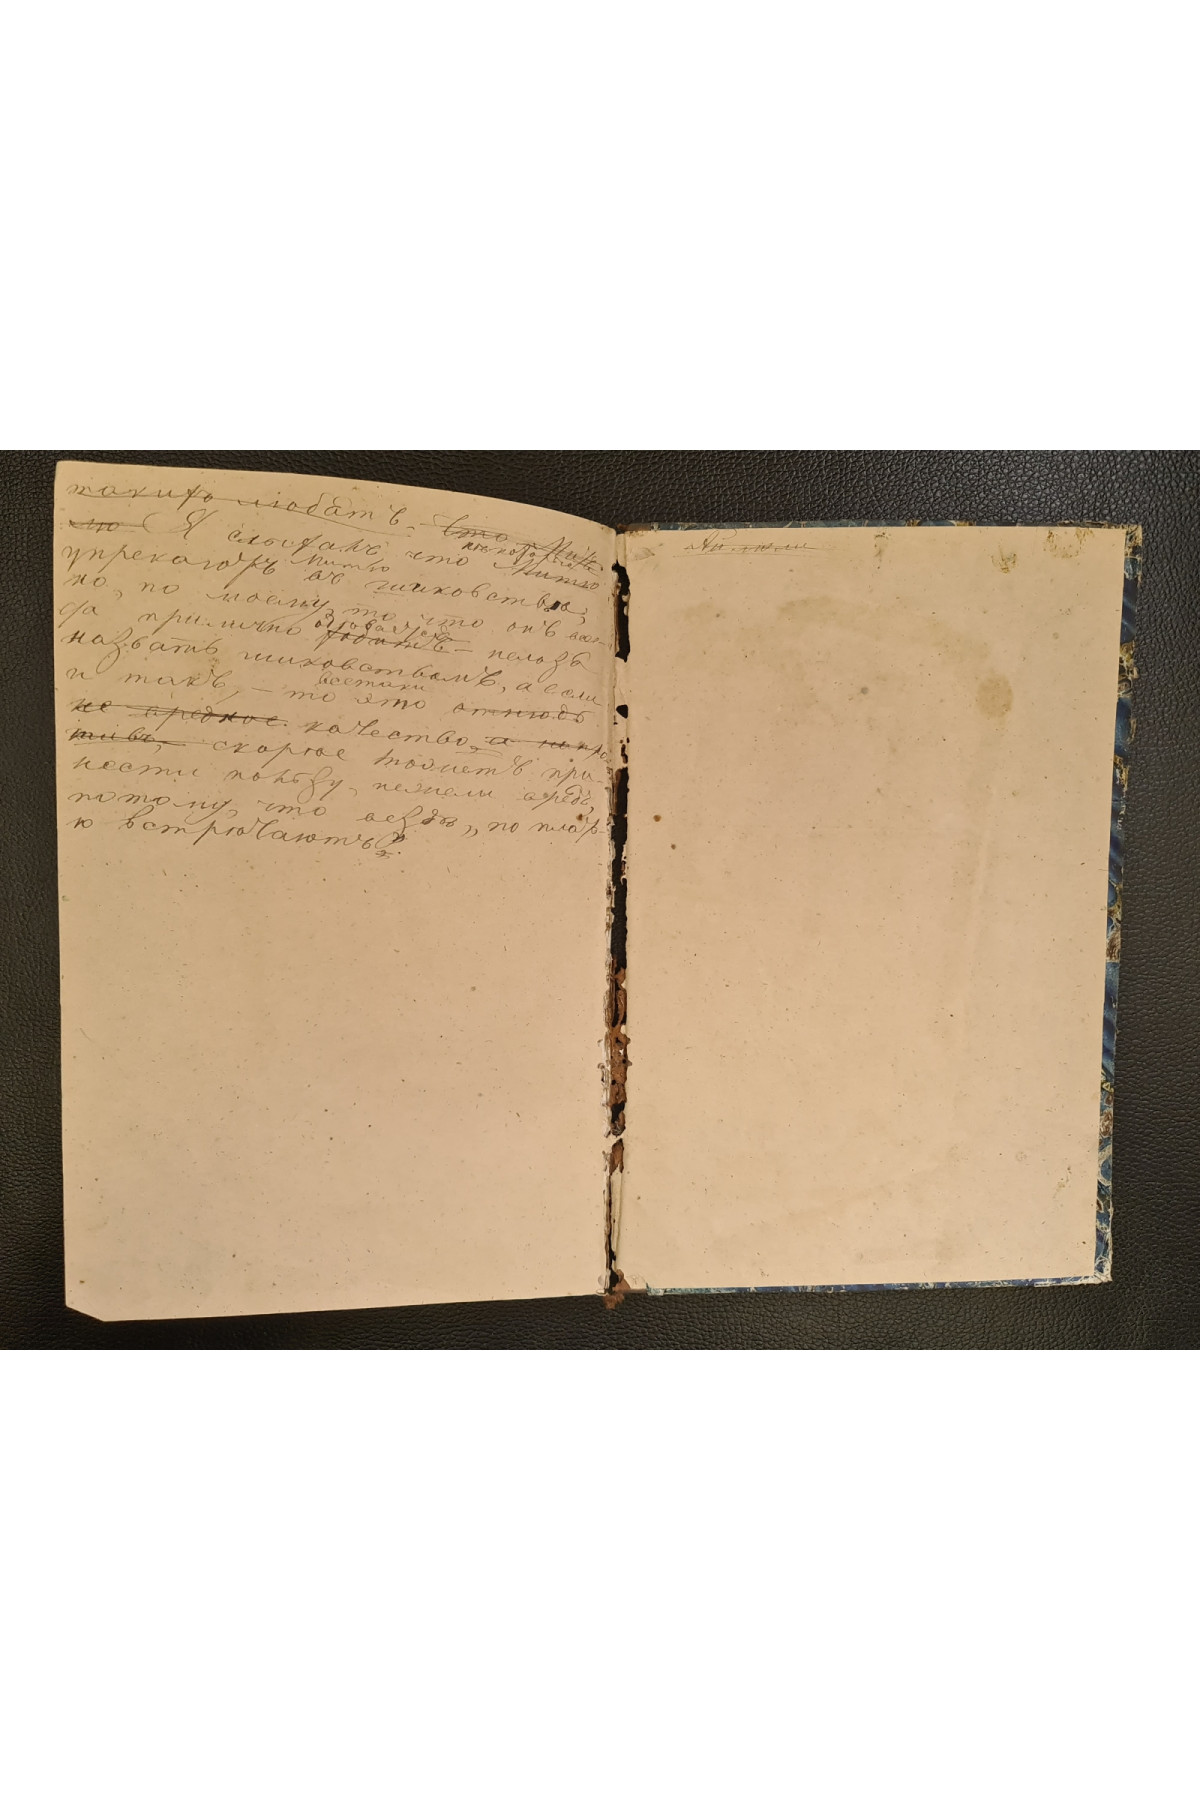 такихъ любятъ. Что Мит-
лю (Я слыхалъ, что некоторые Митю
упрекаютъ Митю въ шиковстве,
но, по моему, то что онъ все-
да прилично одевается ходитъ – нельзя
назвать шиковствомъ, а если
и такъ, – то это всетаки отнюдь
не вредное качество, а на про-
тивъ, скорѣе можетъ при-
нести пользу, нежели вредъ,
потому, что везде „по плать-
ю встрѣчаютъ“).
Ай люли